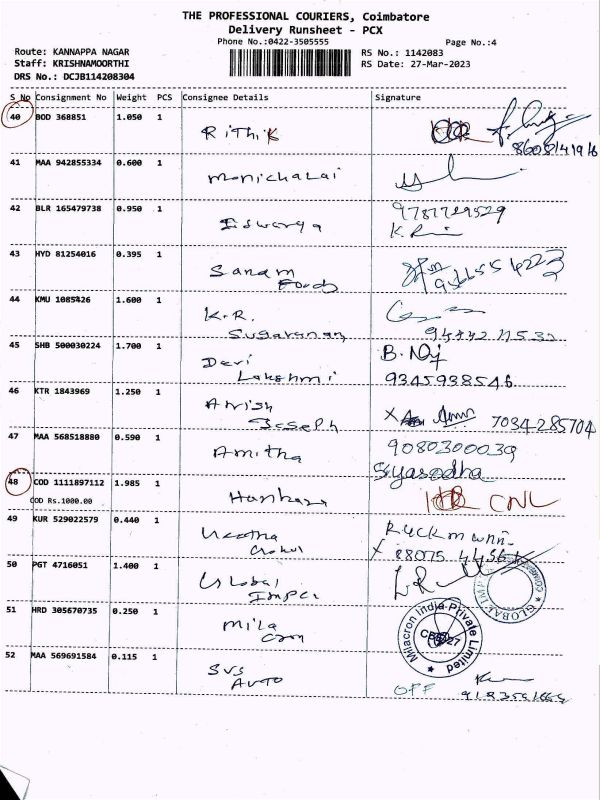 THE PROFESSIONAL COURIERS, Coimbatore
Delivery Runsheet - PCX
Phone No.:0422-3505555
Page No.:4
Route: KANNAPPA NAGAR
RS No.: 1142083
Staff: KRISHNAMOORTHI
RS Date: 27-Mar-2023
DRS No.: DCJB114208304
S No Consignment No Weight PCS Consignee Details Signature
40 BOD 368851 1.050 1 Rithik
8608141916
41 MAA 942855334 0.600 1 Monichalai
42 BLR 165479738 0.950 1 Eswarya
9787729529
43 HYD 81254016 0.395 1 Sanam
Foods
44 KMU 1085426 1.600 1 K.R.
Sugavanan
45 SHB 500030224 1.700 1 Devi
Lakshmi
B.
9345938546
46 KTR 1843969 1.250 1 Anish
Joseph
7034-285704
47 MAA 568518880 0.590 1 Amitha
9080300039
S.yasodha
48 COD 1111897112 1.985 1
COD Rs.1000.00
CNL
49 KUR 529022579 0.440 1
Gokul
50 PGT 4716051 1.400 1 Global
Impex
GLOBAL
51 HRD 305670735 0.250 1 Mila
cron
Milacron India Private Limited
52 MAA 569691584 0.115 1 SVS
AUTO
OFF